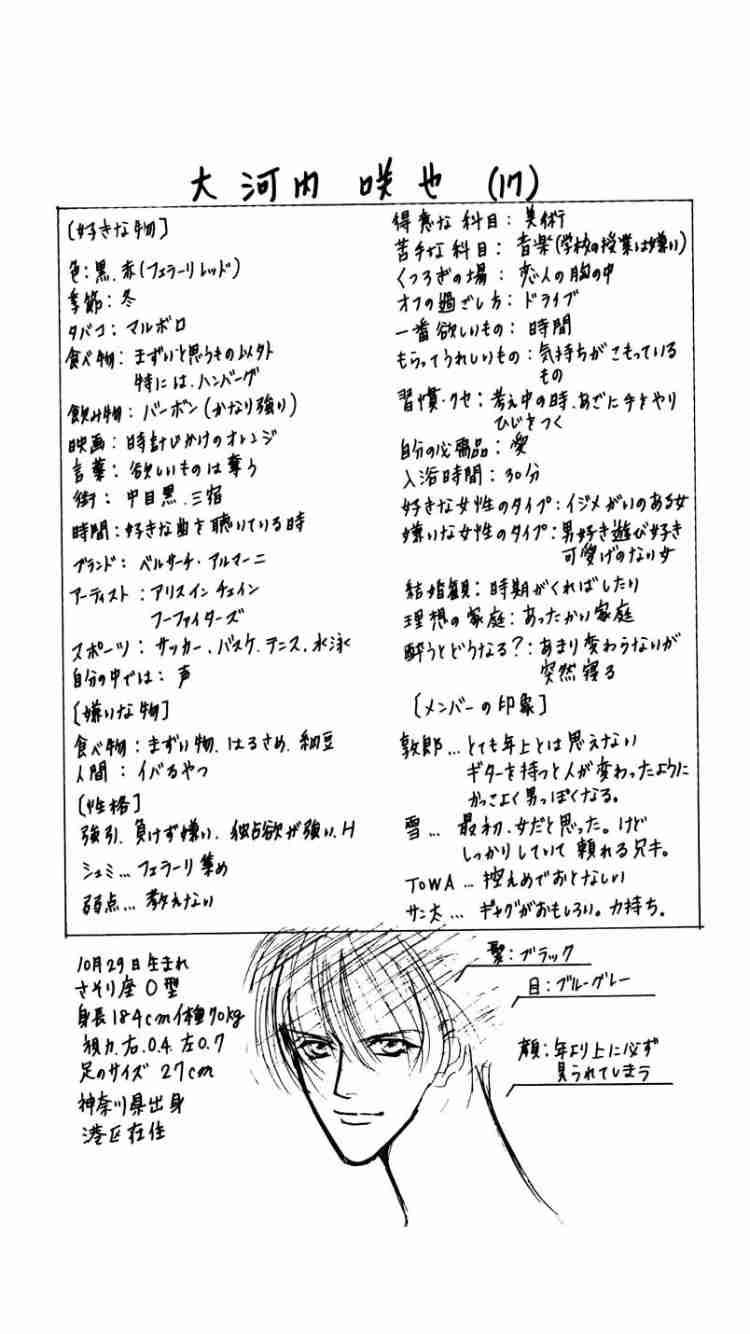 大河内 咲也 (17)
[好きな物]
色:黒.赤(フェラーリレッド)
季節:冬
タバコ:マルボロ
食べ物:まずいと思うもの以外
特には.ハンバーグ
飲み物:バーボン(かなり強い)
映画:時計じかけのオレンジ
言葉:欲しいものは奪う
街:中目黒.三宿
時間:好きな曲を聴いている時
ブランド:ベルサーチ・アルマーニ
アーティスト:アリスインチェイン
フーファイターズ
スポーツ:サッカー.バスケ.テニス.水泳
自分の中では:声
[嫌いな物]
食べ物:まずい物.はるさめ.納豆
人間:イバるやつ
[性格]
強引.負けず嫌い.独占欲が強い.H
シュミ…フェラーリ集め
弱点…教えない
得意な科目:美術
苦手な科目:音楽(学校の授業は嫌い)
くつろぎの場:恋人の胸の中
オフの過ごし方:ドライブ
一番欲しいもの:時間
もらってうれしいもの:気持ちがこもっている
もの
習慣・クセ:考え中の時.あごに手をやり
ひじをつく
自分の必需品:愛
入浴時間:30分
好きな女性のタイプ:イジメがいのある女
嫌いな女性のタイプ:男好き遊び好き
可愛げのない女
結婚観:時期がくればしたい
理想の家庭:あったかい家庭
酔うとどうなる?:あまり変わらないが
突然寝る
[メンバーの印象]
敦郎…とても年上とは思えない
ギターを持つと人が変わったように
かっこよく男っぽくなる。
雪…最初.女だと思った。けど
しっかりしていて頼れる兄キ。
TOWA…控えめでおとなしい
サン太…ギャグがおもしろい。力持ち。
10月29日生まれ
さそり座O型
身長184cm体種70kg
視力.右.0.4.左0.7
足のサイズ 27cm
神奈川県出身
港区在住
髪:ブラック
目:ブルーグレー
顔:年より上に必ず
見られてしまう